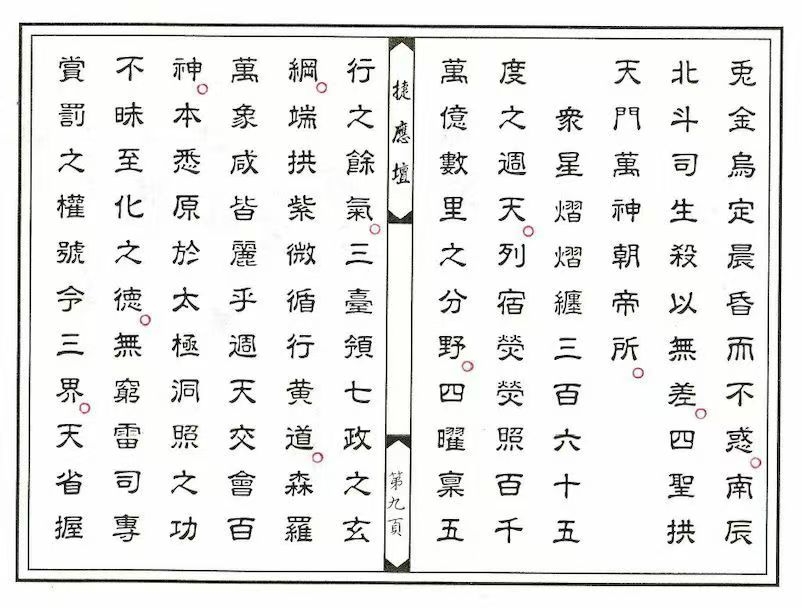 兎金烏定晨昏而不惑。南辰
北斗司生殺以無差。四聖拱
天門萬神朝帝所。
衆星熠熠纏三百六十五
度之週天。列宿熒熒照百千
萬億數里之分野。四曜稟五
捷應壇
第九頁
行之餘氣。三臺領七政之玄
綱。端拱紫微循行黄道。森羅
萬象咸皆麗乎週天交會百
神。本悉原於太極洞照之功
不昧至化之德。無窮雷司專
賞罰之權號令三界。天省握